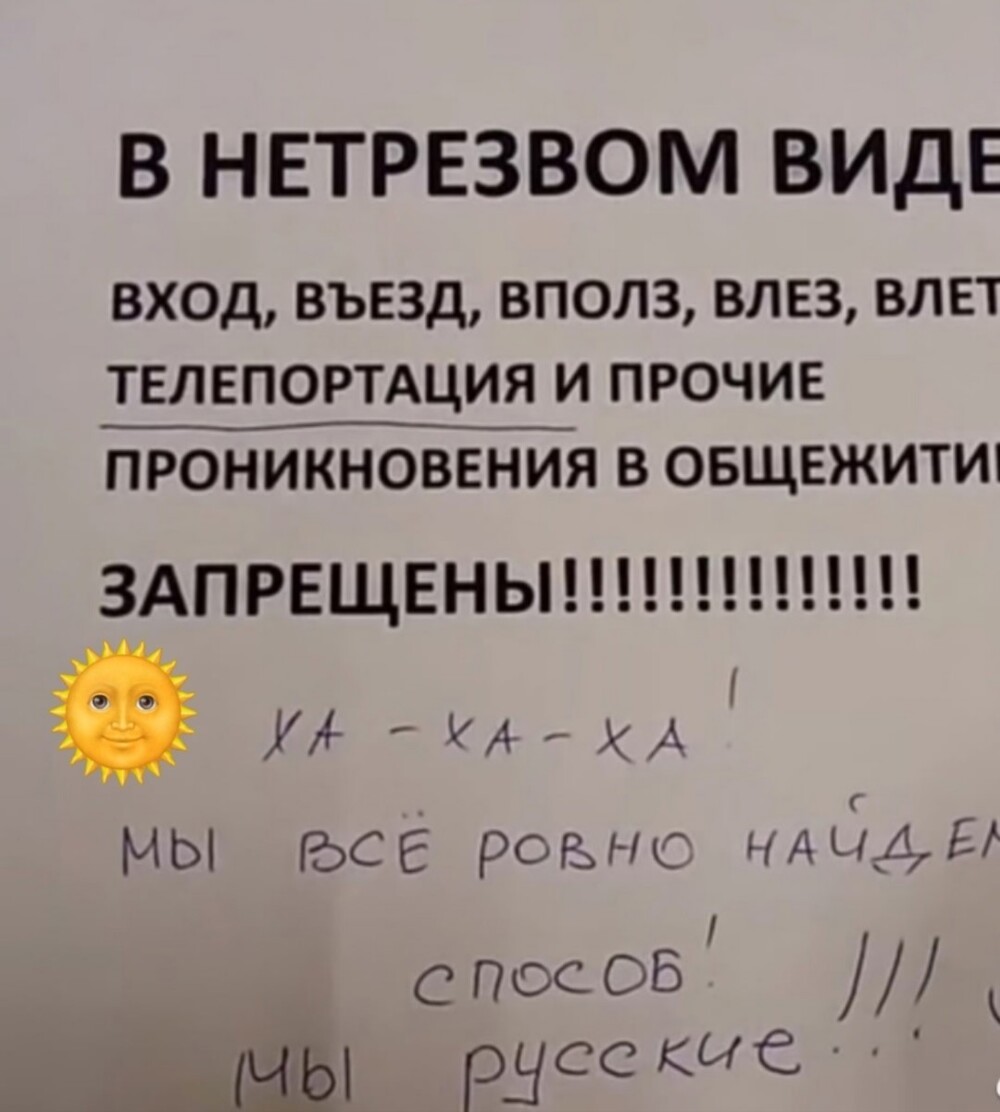 В НЕТРЕЗВОМ ВИДЕ
ВХОД, ВЪЕЗД, ВПОЛЗ, ВЛЕЗ, ВЛЕТ
ТЕЛЕПОРТАЦИЯ И ПРОЧИЕ
ПРОНИКНОВЕНИЯ В ОБЩЕЖИТИ
ЗАПРЕЩЕНЫ!!!!!!!!!!!!!!
ХА - ХА - ХА!
МЫ ВСЁ РОВНО НАЙДЕМ
СПОСОБ! !!!
МЫ русские